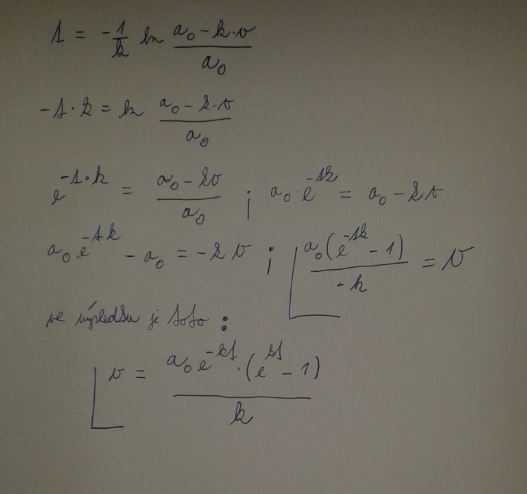 t = -1/k ln (a₀ - k·v)/a₀
-t·k = ln (a₀ - k·v)/a₀
e^(-t·k) = (a₀ - kv)/a₀ ; a₀ e^(-tk) = a₀ - kv
a₀e^(-tk) - a₀ = -kv ; a₀(e^(-tk) - 1)/-k = v
ve výsledku je toto :
v = a₀e^(-kt)·(e^(kt) - 1)/k